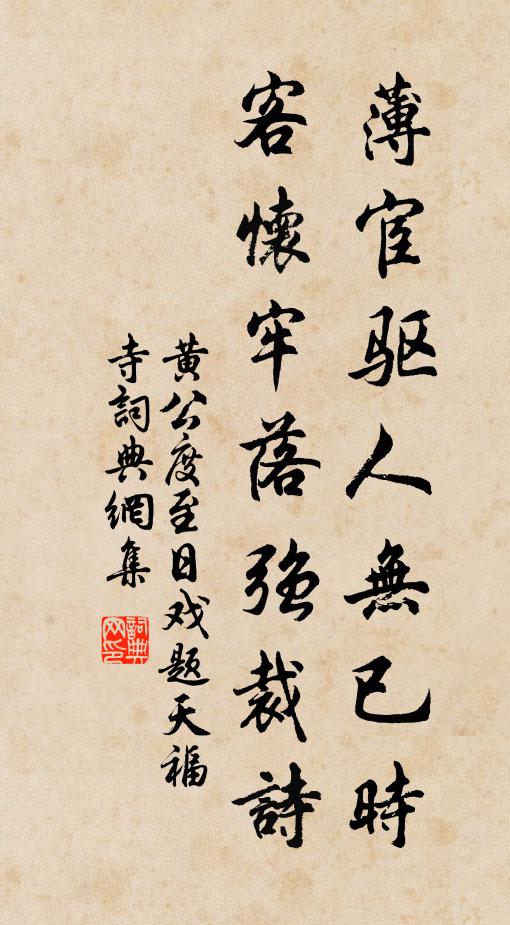 薄宦驱人無已時
客懷牢落强裁詩
黄公度至日戏题天福
寺詞典網集
詞典網印